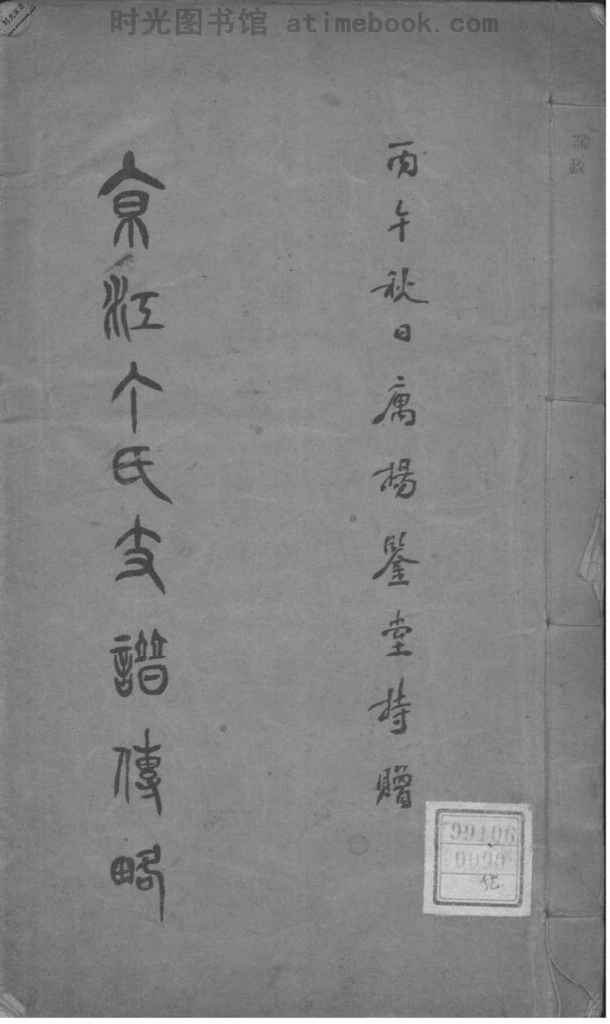 时光图书馆 atimebook.com
丙午秋日寓楊鑒堂持贈
京江个氏支譜傳略
99106
9090